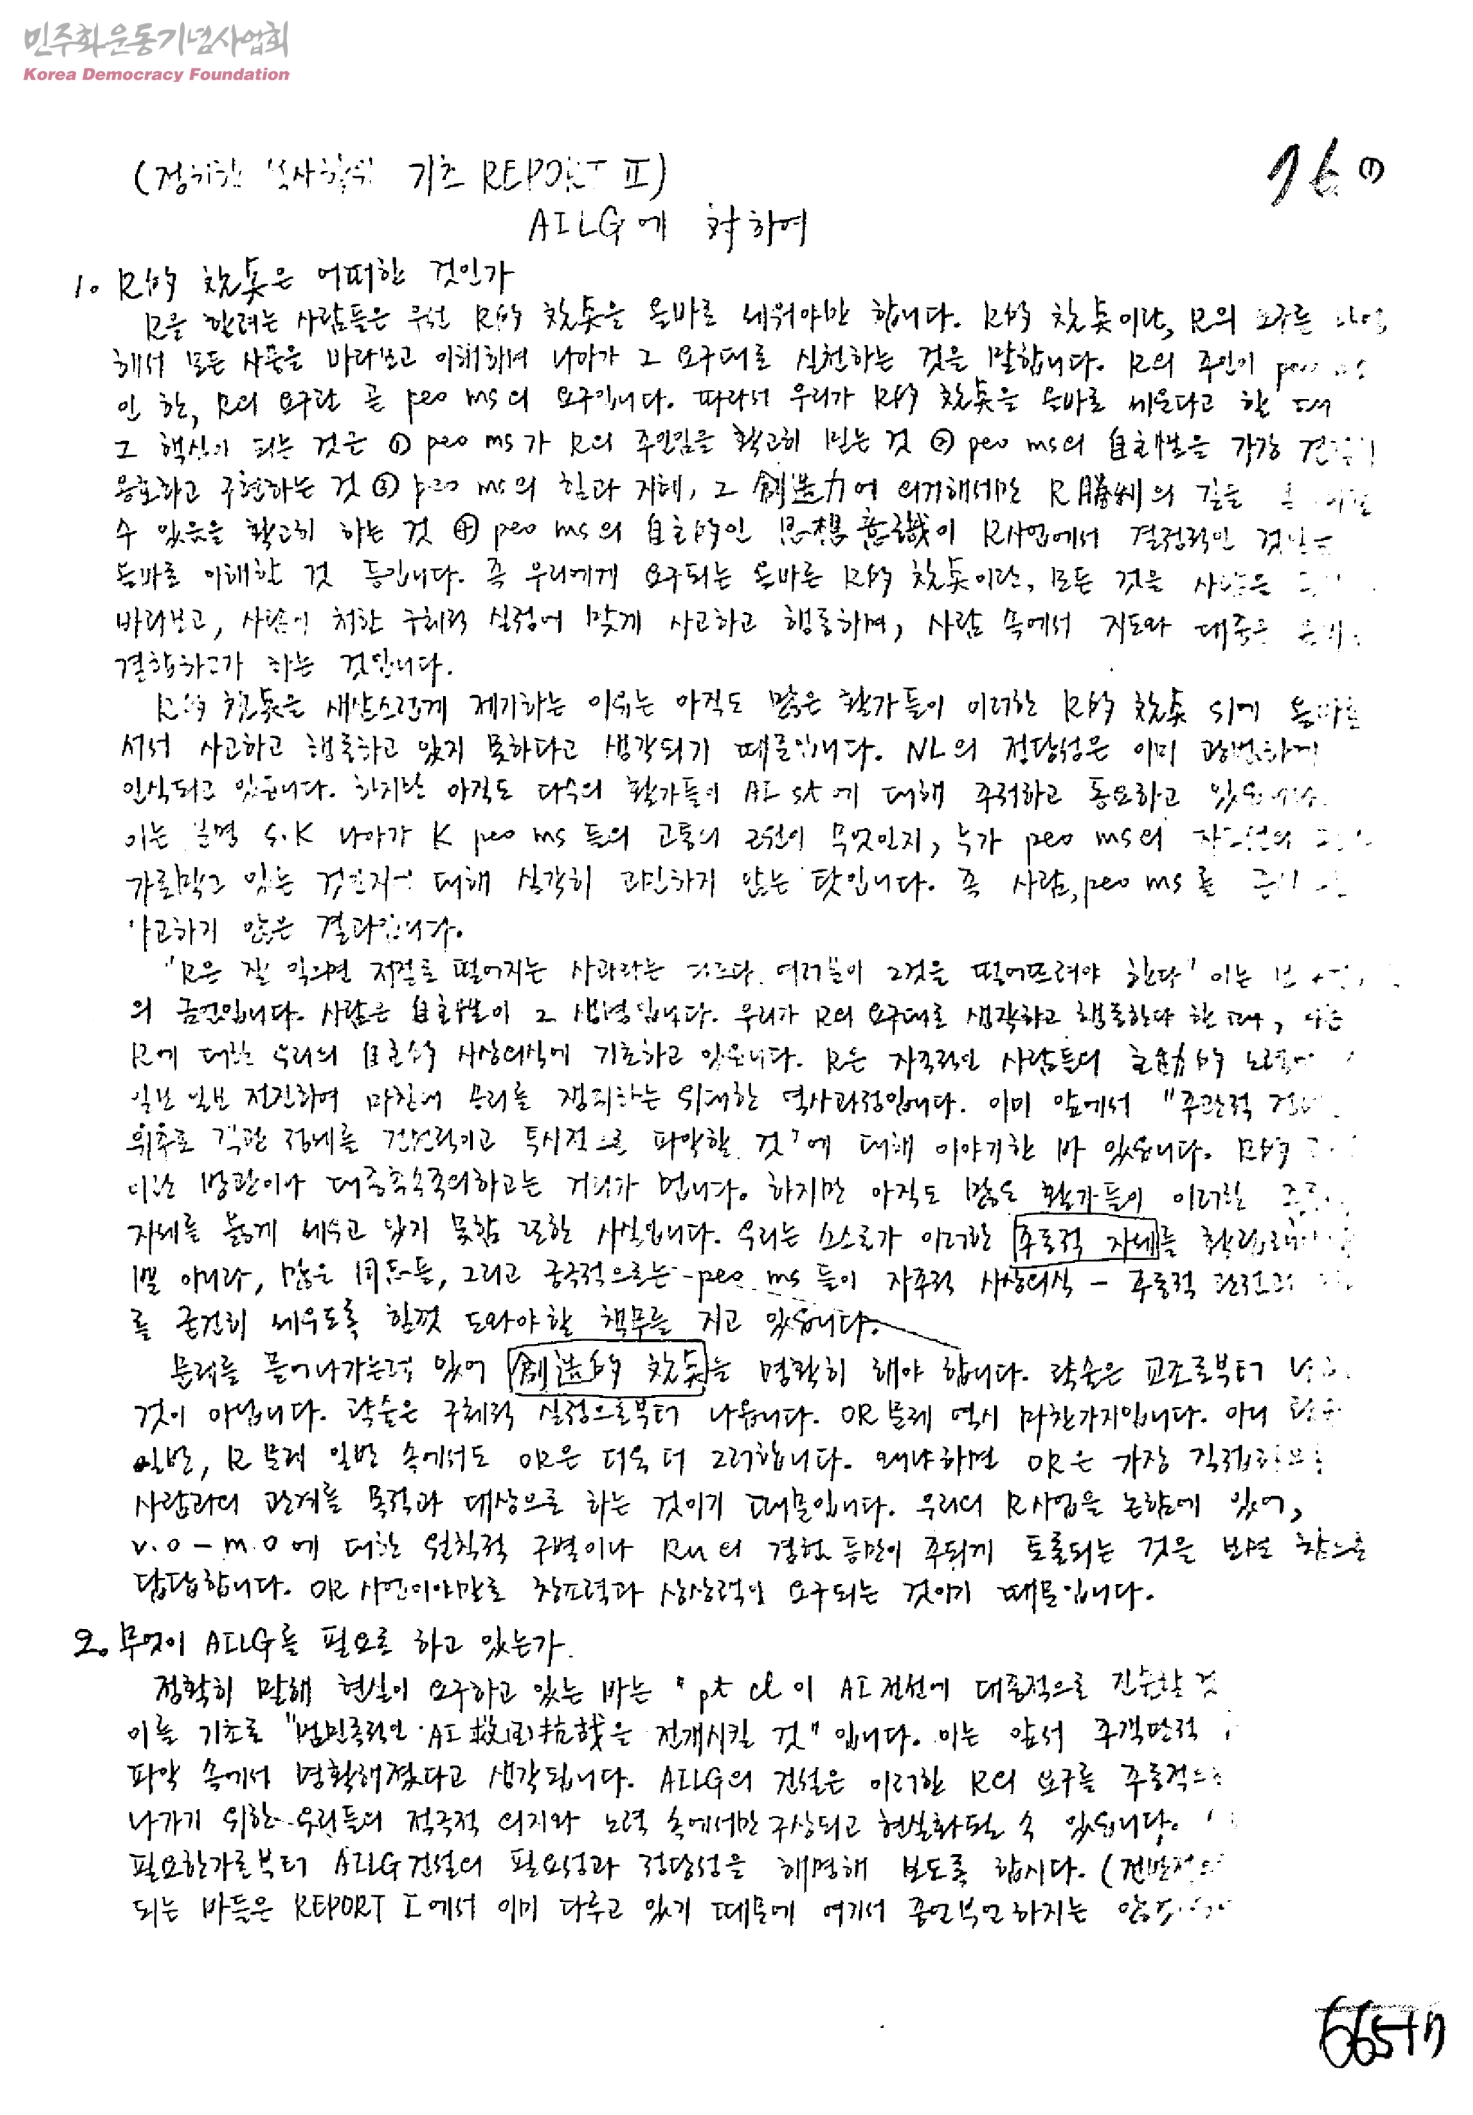 민주화운동기념사업회
Korea Democracy Foundation
기초 REPORT II)
76 ①
AILG에 対하여
1. R的 観点은 어떠한 것인가
R을 할려는 사람들은 우선 R的 観点을 올바로 세워야만 합니다. R的 観点이란, R의 요구를
해서 모든 사물을 바라보고 이해하며 나아가 그 요구대로 실천하는 것을 말합니다. R의 주인이 peo ms
인 한, R의 요구란 곧 peo ms의 요구입니다. 따라서 우리가 R的 観点을 올바로 세운다고 할 때
그 핵심이 되는 것은 ① peo ms가 R의 주인임을 확고히 믿는 것 ② peo ms의 自主性을 가장
옹호하고 구현하는 것 ③ peo ms의 힘과 지혜, 그 創造力에 의거해서만 R 勝利의 길을
수 있음을 확고히 하는 것 ④ peo ms의 自主的인 思想意識이 R사업에서 결정적인 것임을
올바로 이해할 것 등입니다. 즉 우리에게 요구되는 올바른 R的 観点이란, 모든 것을 사람을
바라보고, 사람이 처한 구체적 실정에 맞게 사고하고 행동하며, 사람 속에서 지도와 대중을
결합하고자 하는 것입니다.
R的 観点을 새삼스럽게 제기하는 이유는 아직도 많은 활가들이 이러한 R的 観点 위에 올바로
서서 사고하고 행동하고 있지 못하다고 생각되기 때문입니다. NL의 정당성은 이미 광범하게
인식되고 있습니다. 하지만 아직도 다수의 활가들이 AI st에 대해 주저하고 동요하고 있습니다.
이는 분명 S.K 나아가 K peo ms 들의 고통의 근원이 무엇인지, 누가 peo ms의
가로막고 있는 것인지에 대해 심각히 고민하지 않는 탓입니다. 즉 사람, peo ms를
사고하기 않은 결과입니다.
"R은 잘 익으면 저절로 떨어지는 사과와는 다르다. 여러분이 그것을 떨어뜨려야 한다" 이는
의 금언입니다. 사람은 自主性이 그 생명입니다. 우리가 R의 요구대로 생각하고 행동한다 할 때, 이는
R에 대한 우리의 自主的 사상의식에 기초하고 있습니다. R은 자주적인 사람들의 主動的
일보 일보 전진하여 마침내 승리를 쟁취하는 위대한 역사과정입니다. 이미 앞에서 "주관적
위주로 객관 정세를 전면적이고 동시적으로 파악할 것"에 대해 이야기한 바 있습니다. R的
이란 방관이나 대중추수주의하고는 거리가 멉니다. 하지만 아직도 많은 활가들이 이러한
자세를 붉게 세우고 있지 못함 또한 사실입니다. 우리는 스스로가 이러한 주동적 자세를
뿐 아니라, 많은 同志들, 그리고 궁극적으로는 - peo ms 들이 자주적 사상의식 - 주동적
를 굳건히 세우도록 힘껏 도와야 할 책무를 지고 있습니다.
문제를 풀어나가는데 있어 創造的 観点을 명확히 해야 합니다. 학술은 교조로부터
것이 아닙니다. 학술은 구체적 실정으로부터 나옵니다. OR 문제 역시 마찬가지입니다. 아니
일반, R 문제 일반 속에서도 OR은 더욱 더 그러합니다. 왜냐하면 OR은 가장
사람과의 관계를 목적과 대상으로 하는 것이기 때문입니다. 우리의 R사업을 논함에 있어,
v.o - m.o에 대한 원칙적 구별이나 Ru의 경험 등만이 주되게 토론되는 것을 보면 참으로
답답합니다. OR 사업이야말로 창조력과 상상력이 요구되는 것이기 때문입니다.
2. 무엇이 AILG를 필요로 하고 있는가.
정확히 말해 현실이 요구하고 있는 바는 "pt cl이 AI전선에 대중적으로 진출할 것
이를 기초로 "범민족적인 AI 救国抗戦을 전개시킬 것" 입니다. 이는 앞서 주객관적
파악 속에서 명확해졌다고 생각됩니다. AILG의 건설은 이러한 R의 요구를 주동적으로
나가기 위한 우리들의 적극적 의지와 노력 속에서만 구상되고 현실화될 수 있습니다.
필요한가로부터 AILG건설의 필요성과 정당성을 해명해 보도록 합시다. (전반적으로
되는 바들은 REPORT I에서 이미 다루고 있기 때문에 여기서 중언부언하지는
665-17